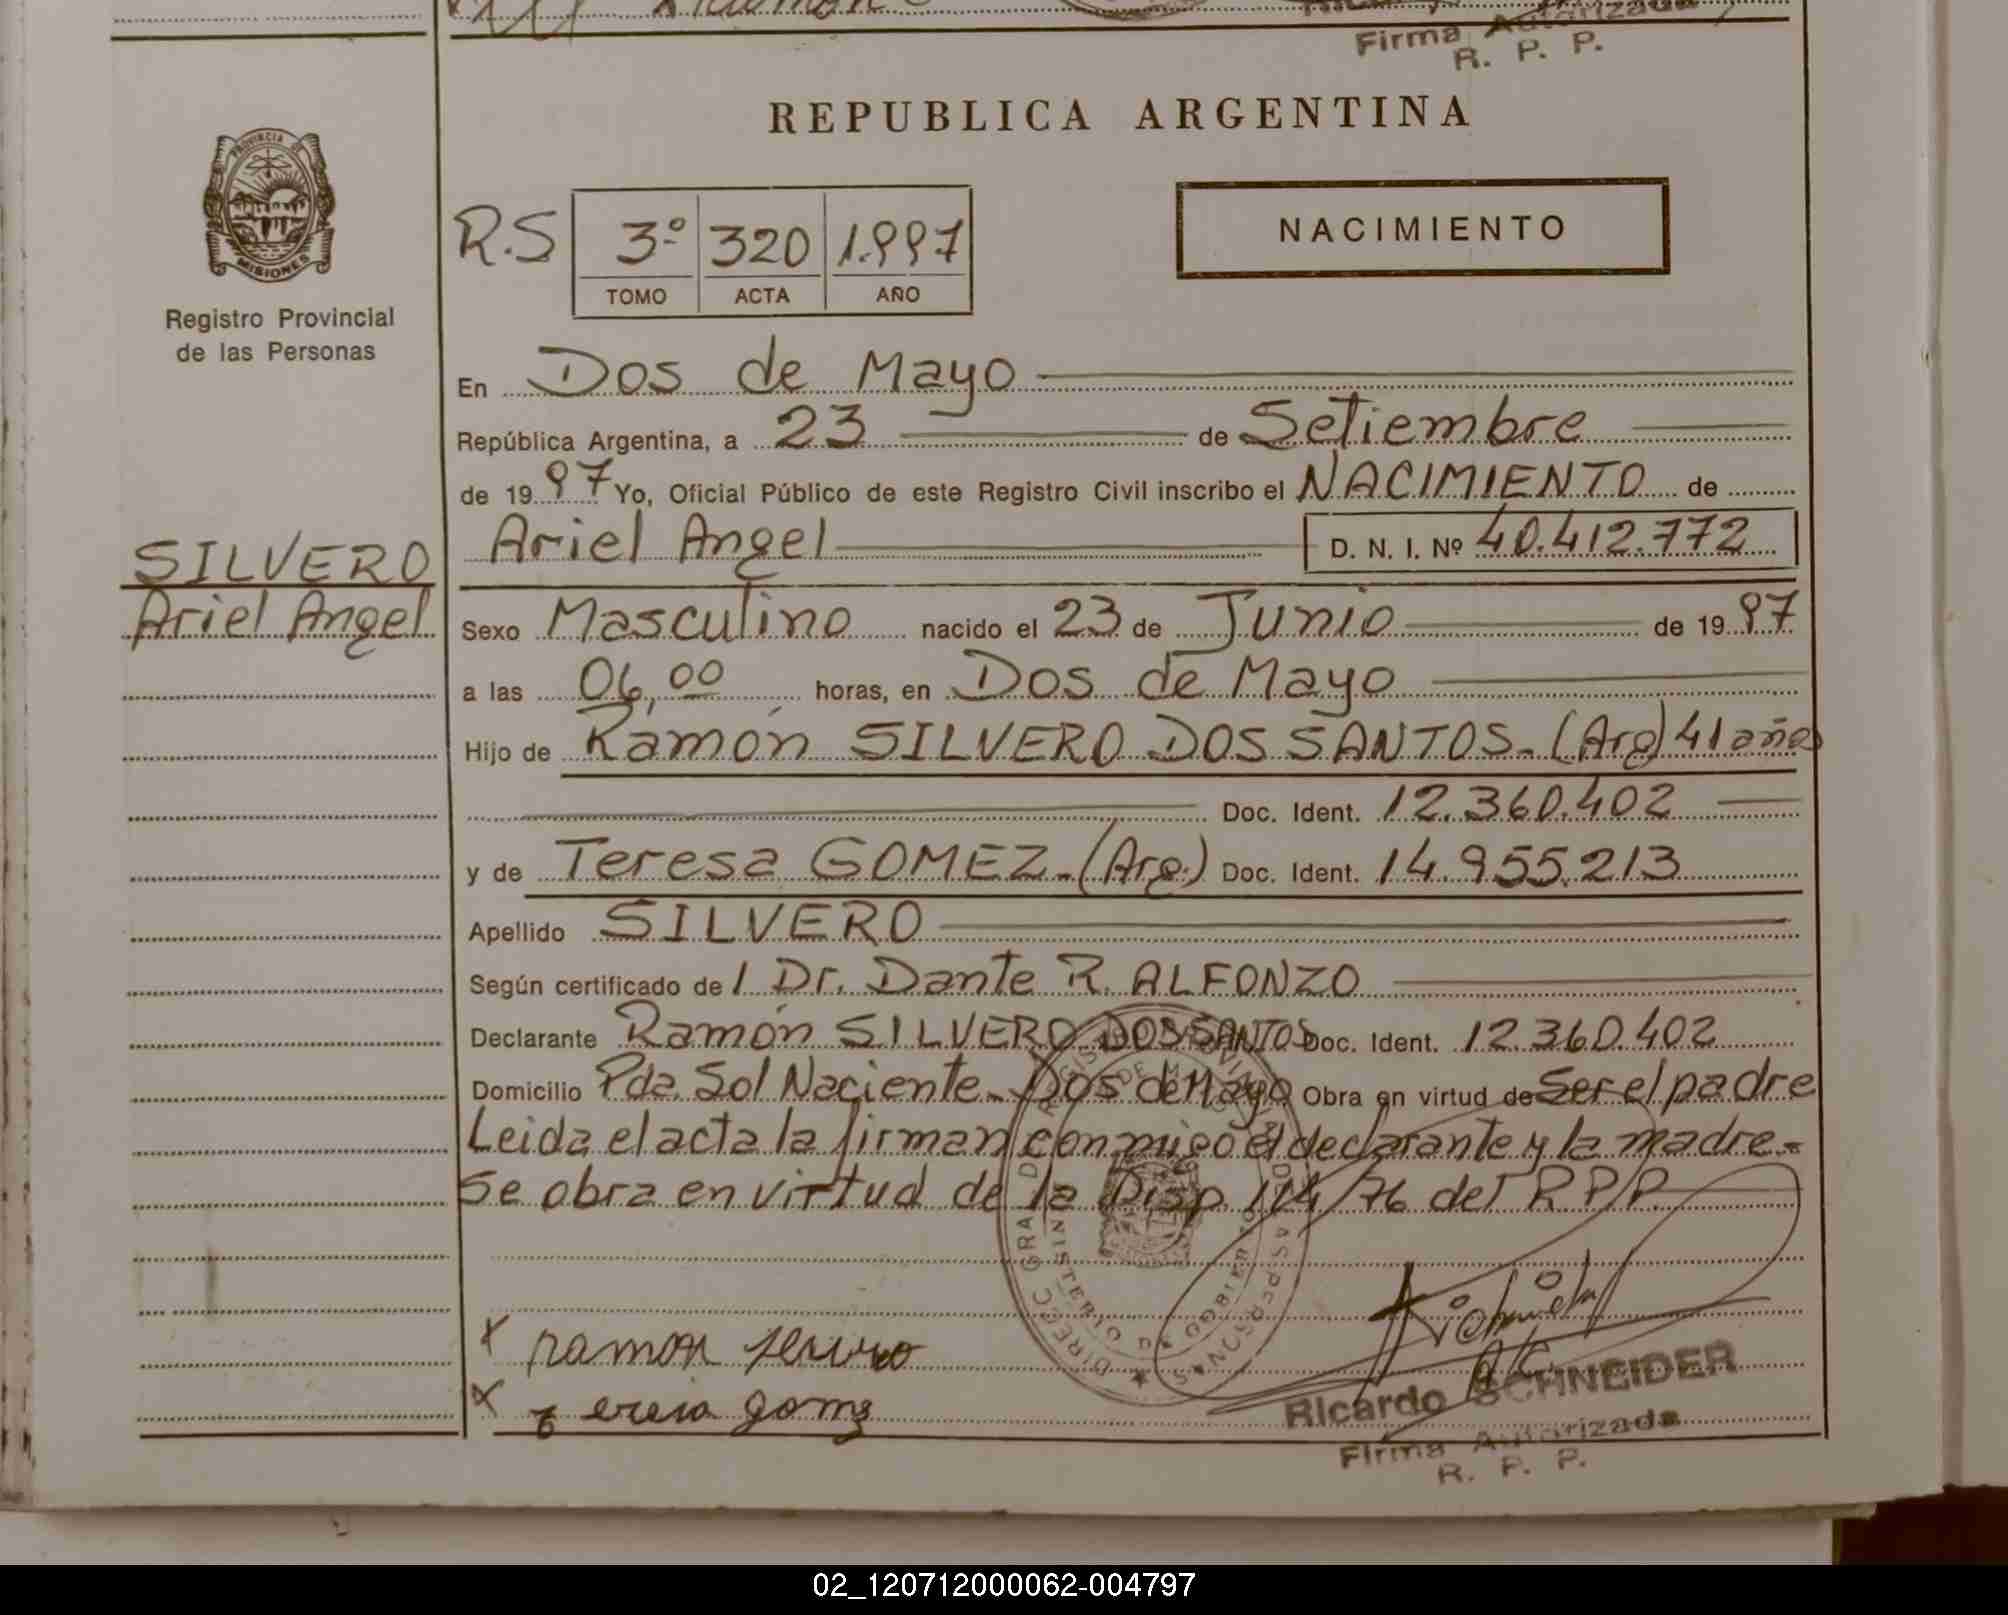 Firma Autorizada
R. P. P.
REPUBLICA ARGENTINA
PROVINCIA DE
MISIONES
Registro Provincial
de las Personas
R.S 3º 320 1.997
TOMO ACTA AÑO
NACIMIENTO
En Dos de Mayo
República Argentina, a 23 de Setiembre
de 19 97 Yo, Oficial Público de este Registro Civil inscribo el NACIMIENTO de
Ariel Angel D. N. I. Nº 40.412.772
SILVERO
Ariel Angel
Sexo Masculino nacido el 23 de Junio de 19 97
a las 06,00 horas, en Dos de Mayo
Hijo de Ramón SILVERO DOS SANTOS.- (Arg) 41 años
Doc. Ident. 12.360.402
y de Teresa GOMEZ.- (Arg.) Doc. Ident. 14.955.213
Apellido SILVERO
Según certificado del Dr. Dante R. ALFONZO
Declarante Ramón SILVERO DOS SANTOS Doc. Ident. 12.360.402
Domicilio Pda. Sol Naciente.- Dos de Mayo Obra en virtud de Ser el padre
Leida el acta la firman conmigo el declarante y la madre.-
Se obra en virtud de la Disp. 114/76 del R P P.
ramon
gomz
Ricardo SCHNEIDER
Firma Autorizada
R. P. P.
02_120712000062-004797